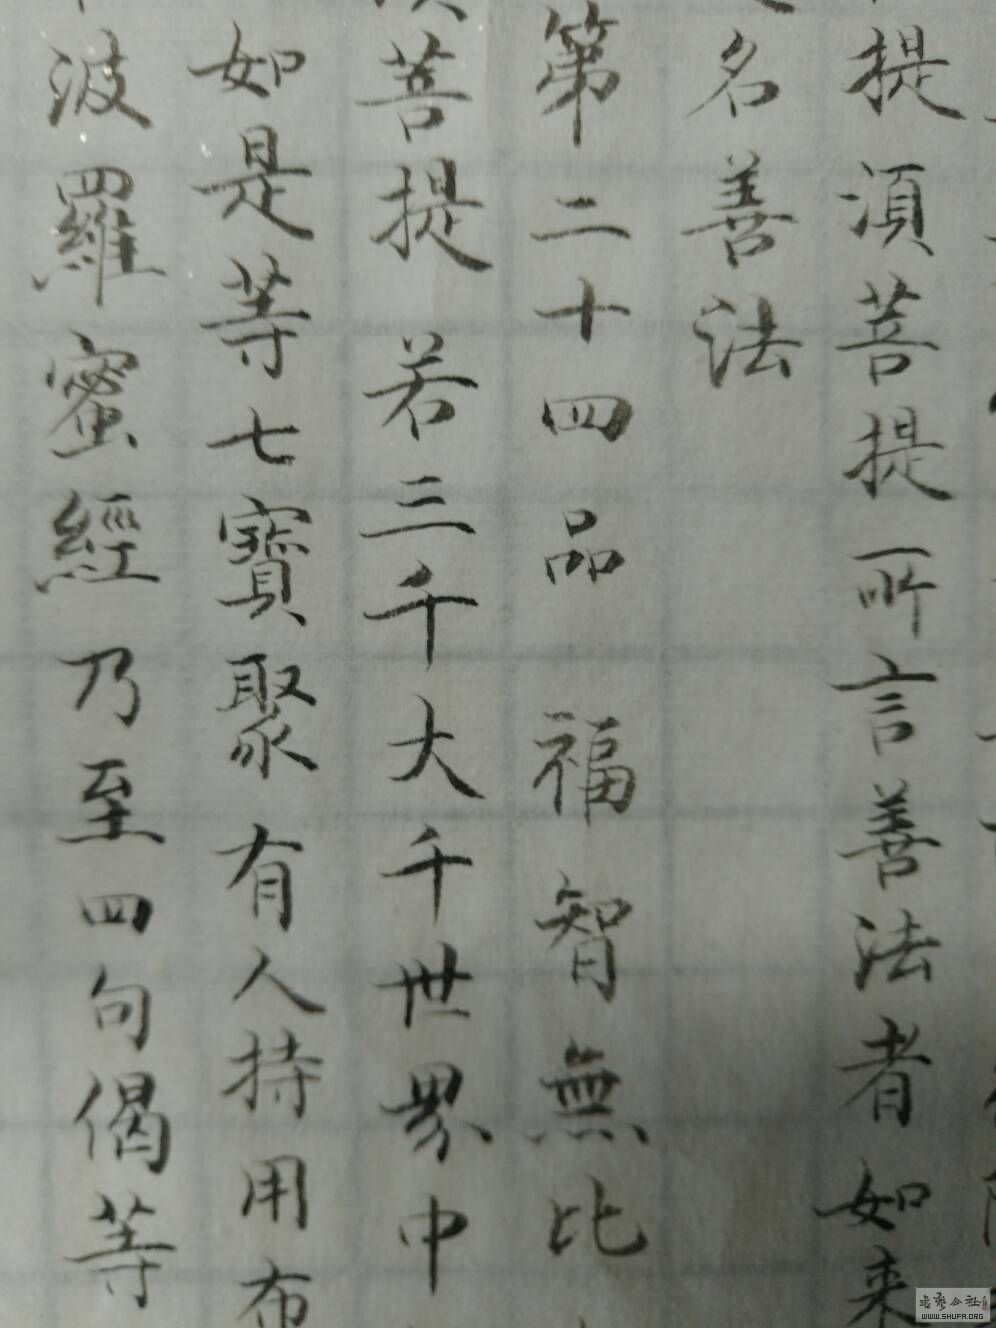 提須菩提所言善法者如来
名善法
第二十四品福智無比
菩提若三千大千世界中
如是等七寶聚有人持用布
波羅蜜經乃至四句偈等
WWW.SHUFA.ORG